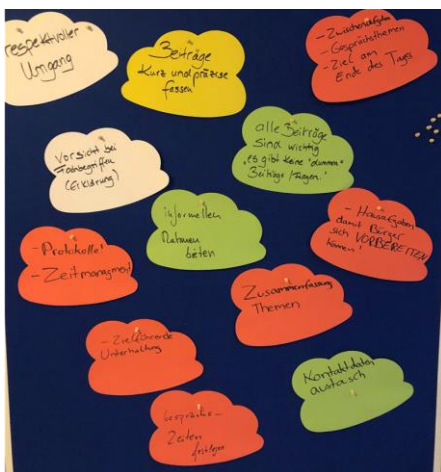 respektvoller
Umgang
Beiträge
Kurz und präzise
fassen
- Zwischenaufgaben
- Gesprächsthemen
- Ziel am
Ende des Tages
Vorsicht bei
Fachbegriffen
(Erklärung)
alle Beiträge
sind wichtig
"es gibt keine "dummen"
Beiträge/Fragen."
informellen
Rahmen
bieten
- Hausaufgaben
damit Bürger
sich VORBEREITEN
können!
- Protokolle!
- Zeitmanagment
Zusammenfassung
Themen
- Zielführende
Unterhaltung
Kontaktdaten
austausch
Gesprächs-
Zeiten
festlegen